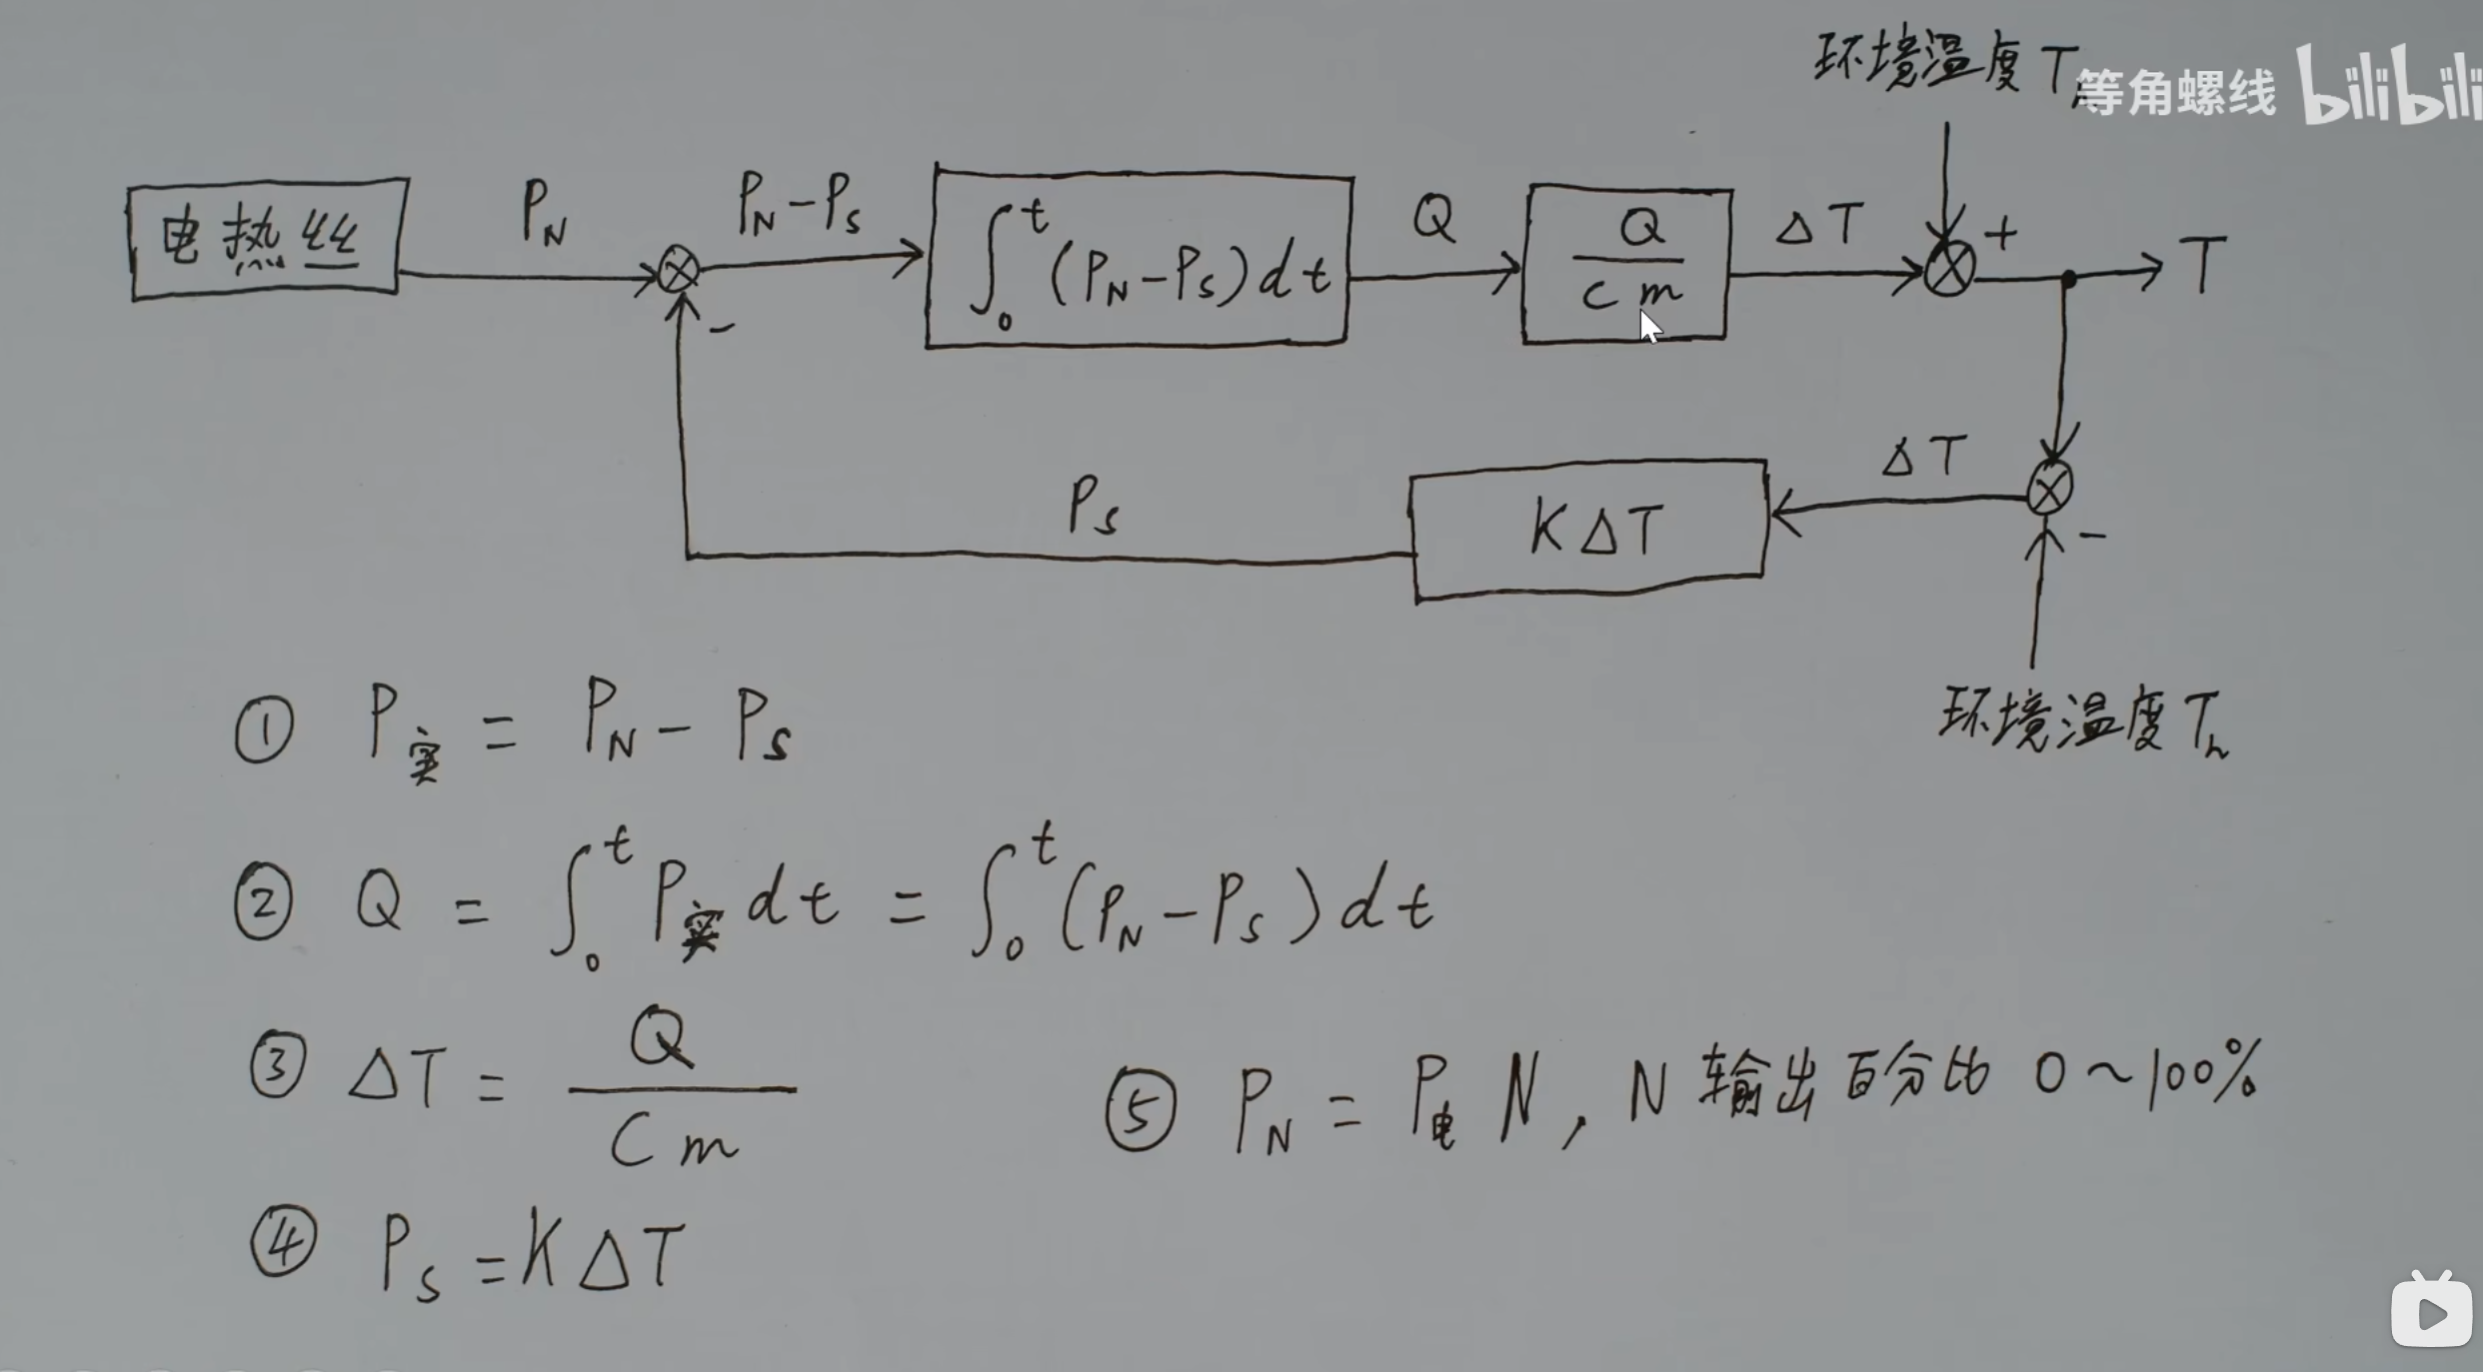 环境温度 T
等角螺线 bilibili
电热丝
P_N
P_N - P_S
∫₀ᵗ (P_N - P_S) dt
Q
Q / cm
ΔT
+
T
-
ΔT
KΔT
P_S
-
环境温度 T_h
① P_实 = P_N - P_S
② Q = ∫₀ᵗ P_实 dt = ∫₀ᵗ (P_N - P_S) dt
③ ΔT = Q / Cm
⑤ P_N = P_电 N , N 输出百分比 0~100%
④ P_S = KΔT